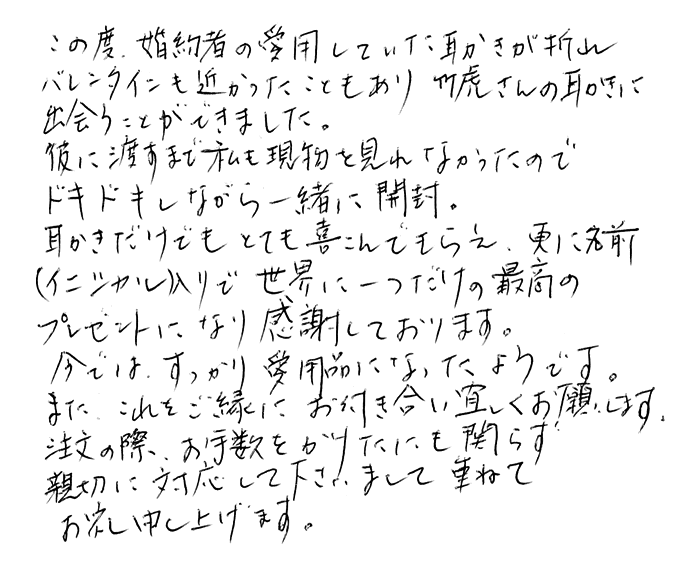 この度、婚約者の愛用していた耳かきが折れ
バレンタインも近かったこともあり 竹虎さんの耳かきに
出会うことができました。
彼に渡すまで私も現物を見れなかったので
ドキドキしながら一緒に開封。
耳かきだけでもとても喜こんでもらえ、更に名前
(イニシャル)入りで世界に一つだけの最高の
プレゼントになり感謝しております。
今では、すっかり愛用品になったようです。
また、これをご縁にお付き合い宜しくお願いします。
注文の際、お手数をかけたにも関らず
親切に対応して下さいまして重ねて
お礼申し上げます。